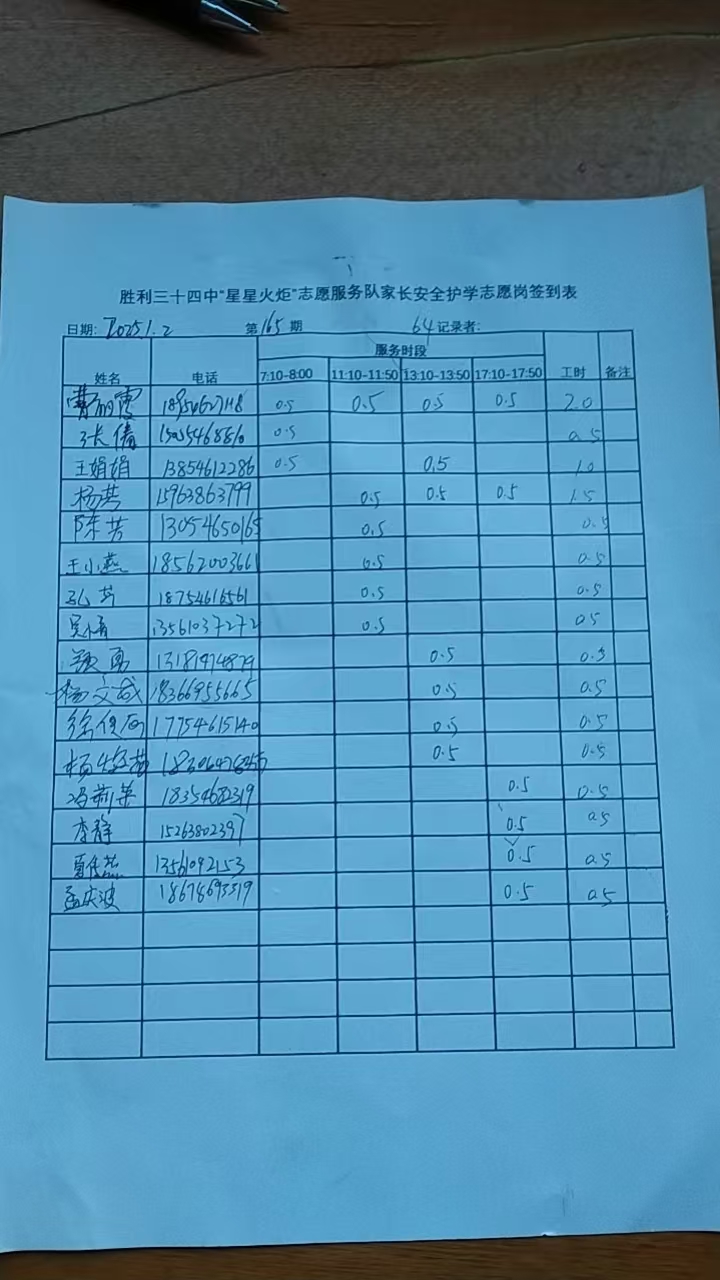 胜利三十四中“星星火炬”志愿服务队家长安全护学志愿岗签到表
日期: 2025.1.2 第165期 64记录者:
服务时段
姓名 电话 7:10-8:00 11:10-11:50 13:10-13:50 17:10-17:50 工时 备注
0.5 0.5 0.5 0.5 2.0
张倩 0.5 0.5
王娟娟 13854612286 0.5 0.5 1.0
杨燕 15963863799 0.5 0.5 0.5 1.5
陈芳 13054650165 0.5 0.5
王小燕 18562003661 0.5 0.5
孔芳 18754616561 0.5 0.5
13561037272 0.5 0.5
0.5 0.5
杨文成 18366955665 0.5 0.5
17754615140 0.5 0.5
0.5 0.5
冯莉英 0.5 0.5
李静 15263802397 0.5 0.5
13561092153 0.5 0.5
孟庆波 18678693519 0.5 0.5